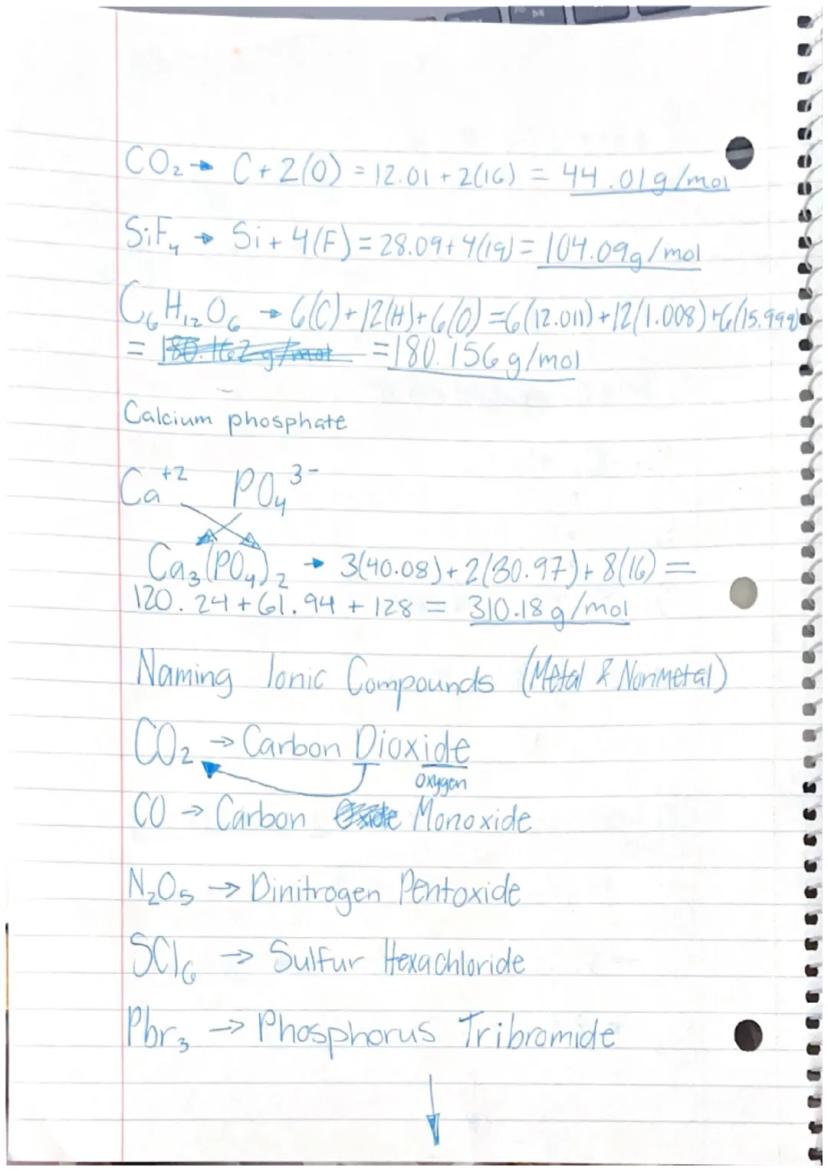 CO₂ → C + 2(O) = 12.01 + 2(16) = 44.01g/mol
SiF₄ → Si + 4(F) = 28.09 + 4(19) = 104.09g/mol
C₆H₁₂O₆ → 6(C) + 12(H) + 6(O) = 6(12.011) + 12(1.008) + 6(15.999)
= 180.162 g/mol = 180.156 g/mol
Calcium phosphate
Ca⁺² PO₄³⁻
Ca₃(PO₄)₂ → 3(40.08) + 2(30.97) + 8(16) =
120.24 + 61.94 + 128 = 310.18 g/mol
Naming Ionic Compounds (Metal & Nonmetal)
CO₂ → Carbon Dioxide
oxygen
CO → Carbon Oxide Monoxide
N₂O₅ → Dinitrogen Pentoxide
SCl₆ → Sulfur Hexachloride
Pbr₃ → Phosphorus Tribromide